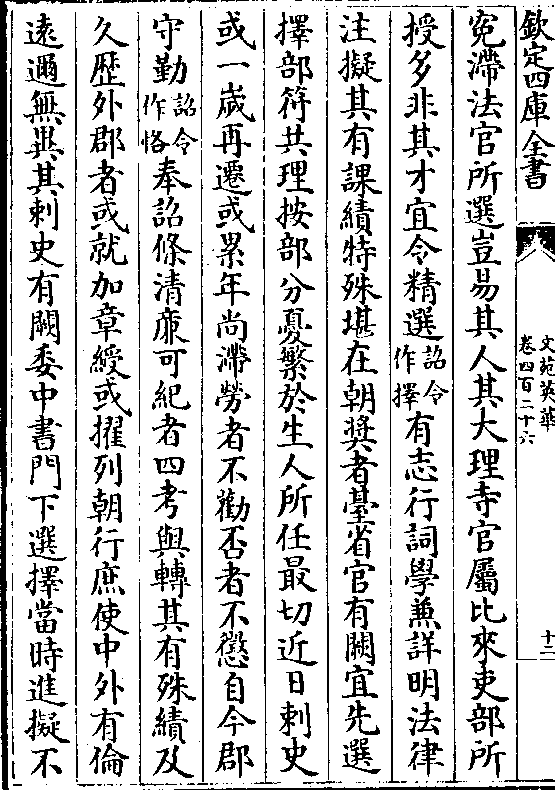 欽定四庫全書
文苑英華
卷四百二十六
十二
寃滯法官所選豈易其人其大理寺官屬比來吏部所
授多非其才宜令精選詔令作擇有志行詞學兼詳明法律
注擬其有課績特殊堪在朝奬者臺省官有闕宜先選
擇部符共理按部分憂繫於生人所任最切近日刺史
或一嵗再遷或累年尚滯勞者不勸否者不懲自今郡
守勤詔令作恪奉詔條清亷可紀者四考與轉其有殊績及
久歴外郡者或就加章綬或擢列朝行庶使中外有倫
遠邇無異其刺史有闕委中書門下選擇當時進擬不